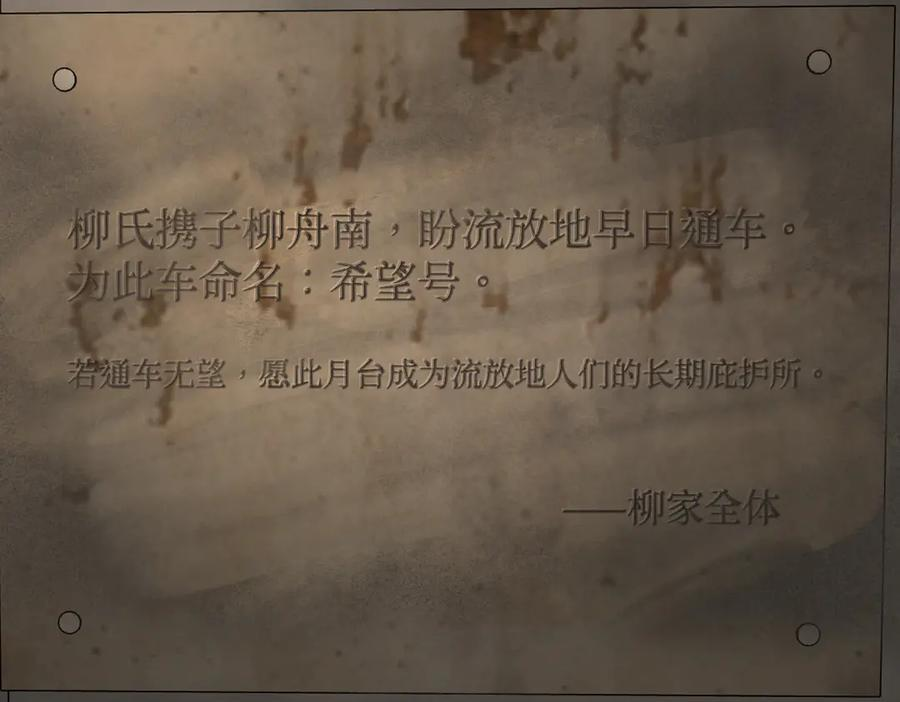 柳氏携子柳舟南，盼流放地早日通车。
为此车命名：希望号。
若通车无望，愿此月台成为流放地人们的长期庇护所。
——柳家全体